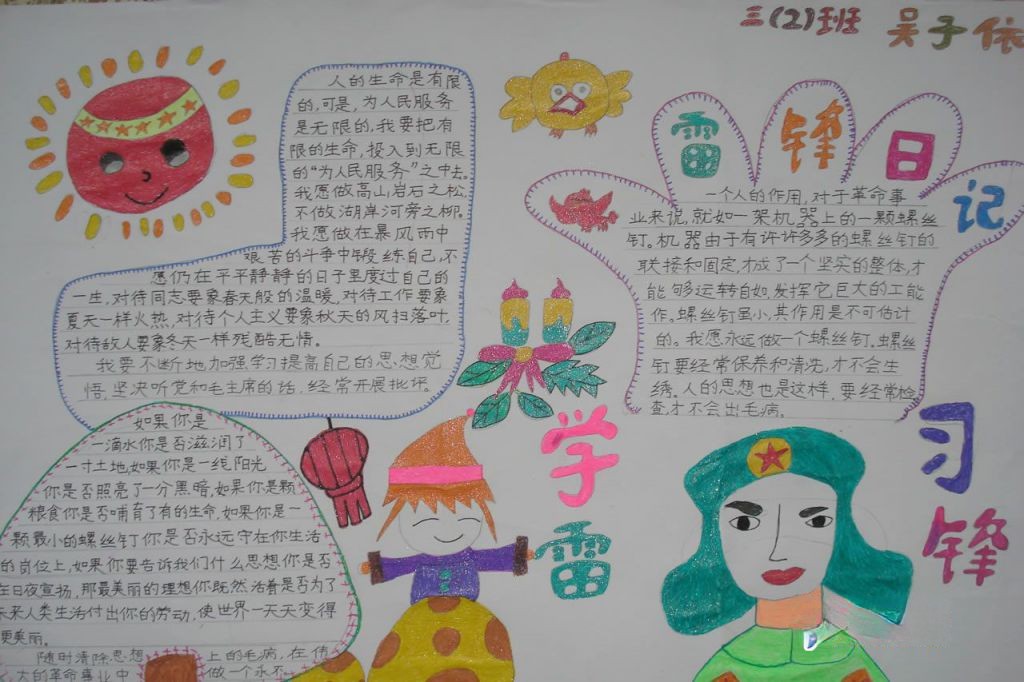 三(2)班 吴予依
人的生命是有限
的,可是,为人民服务
是无限的,我要把有
限的生命,投入到无限
的“为人民服务”之中去。
我愿做高山岩石之松,
不做湖岸河旁之柳。
我愿做在暴风雨中
艰苦的斗争中锻练自己,不
愿仍在平平静静的日子里度过自己的
一生,对待同志要象春天般的温暖,对待工作要象
夏天一样火热,对待个人主义要象秋天的风扫落叶,
对待敌人要象冬天一样残酷无情。
我要不断地加强学习提高自己的思想觉
悟,坚决听党和毛主席的话,经常开展批评。
雷锋日记
一个人的作用,对于革命事
业来说,就如一架机器上的一颗螺丝
钉。机器由于有许许多多的螺丝钉的
联接和固定,才成了一个坚实的整体,才
能够运转自如,发挥它巨大的工能
作。螺丝钉虽小,其作用是不可估计
的。我愿永远做一个螺丝钉。螺丝
钉要经常保养和清洗,才不会生
绣。人的思想也是这样,要经常检
查,才不会出毛病。
如果你是
一滴水你是否滋润了
一寸土地,如果你是一线阳光
你是否照亮了一分黑暗,如果你是颗
粮食你是否哺育了有的生命,如果你是一
颗最小的螺丝钉你是否永远守在你生活
的岗位上,如果你要告诉我们什么思想你是否
在日夜宣扬,那最美丽的理想你既然活着是否为了
未来人类生活付出你的劳动,使世界一天天变得
更美丽。
随时清除思想上的毛病,在伟
大的革命事业中做一个永不
学习
雷锋